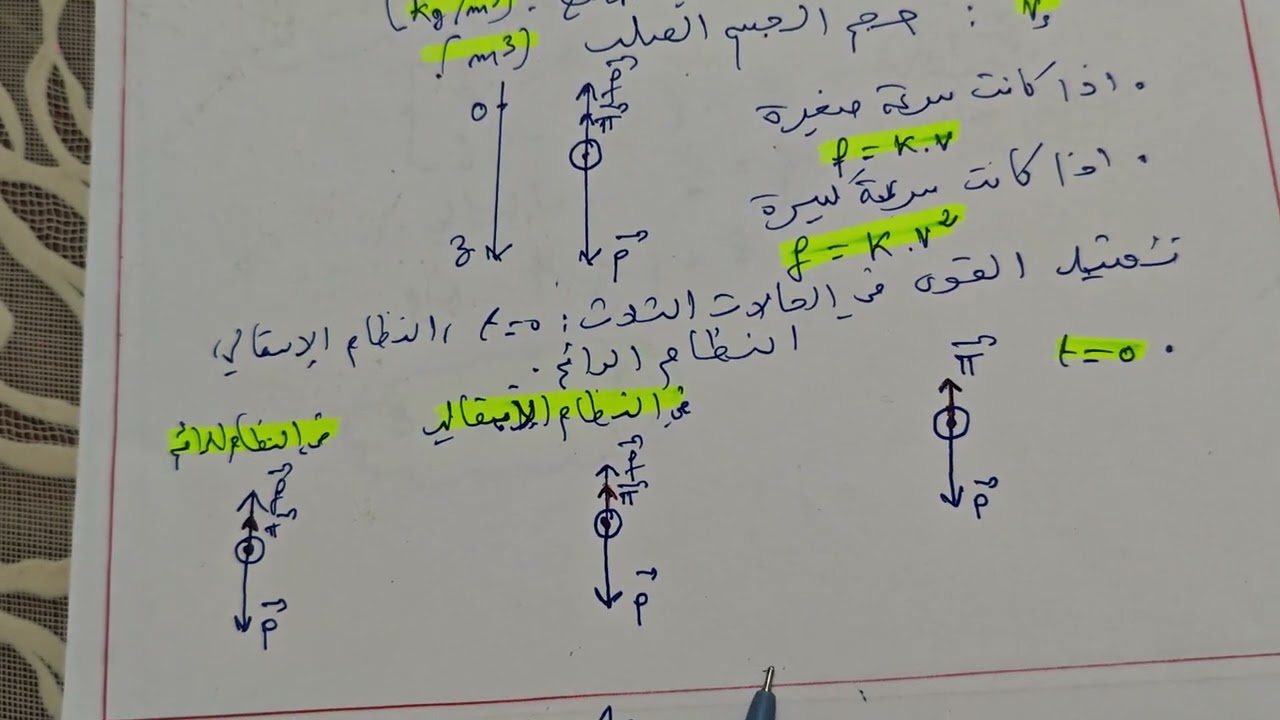 (kg/m³).
Vs : حجم الجسم الصلب (m³).
. اذا كانت سرعة صغيرة
f = k.v
. اذا كانت سرعة كبيرة
f = k.v²
0
z
f
π
P
تمثيل القوى في الحالات الثلاث: t=0، النظام الإنتقالي،
النظام الدائم.
. t=0
π
P
في النظام الإنتقالي
f
π
P
في النظام الدائم
f
π
P